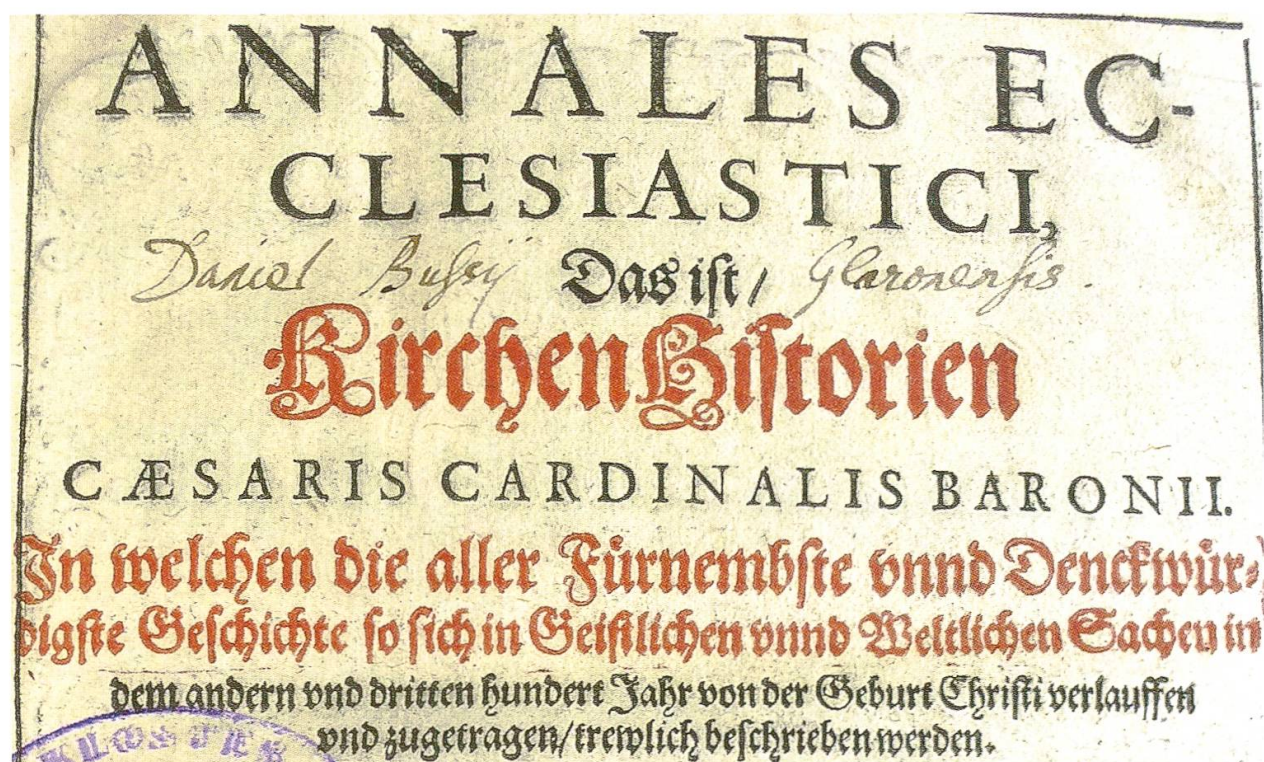 ANNALES EC-
CLESIASTICI,
Daniel Bussij Das ist / Glaronensis.
Kirchen Historien
CÆSARIS CARDINALIS BARONII.
In welchen die aller Fürnembste vnnd Denckwür-
digste Geschichte so sich in Geistlichen vnnd Weltlichen Sachen in
dem andern vnd dritten hundert Jahr von der Geburt Christi verlauffen
vnd zugetragen/trewlich beschrieben werden.
KLOSTER